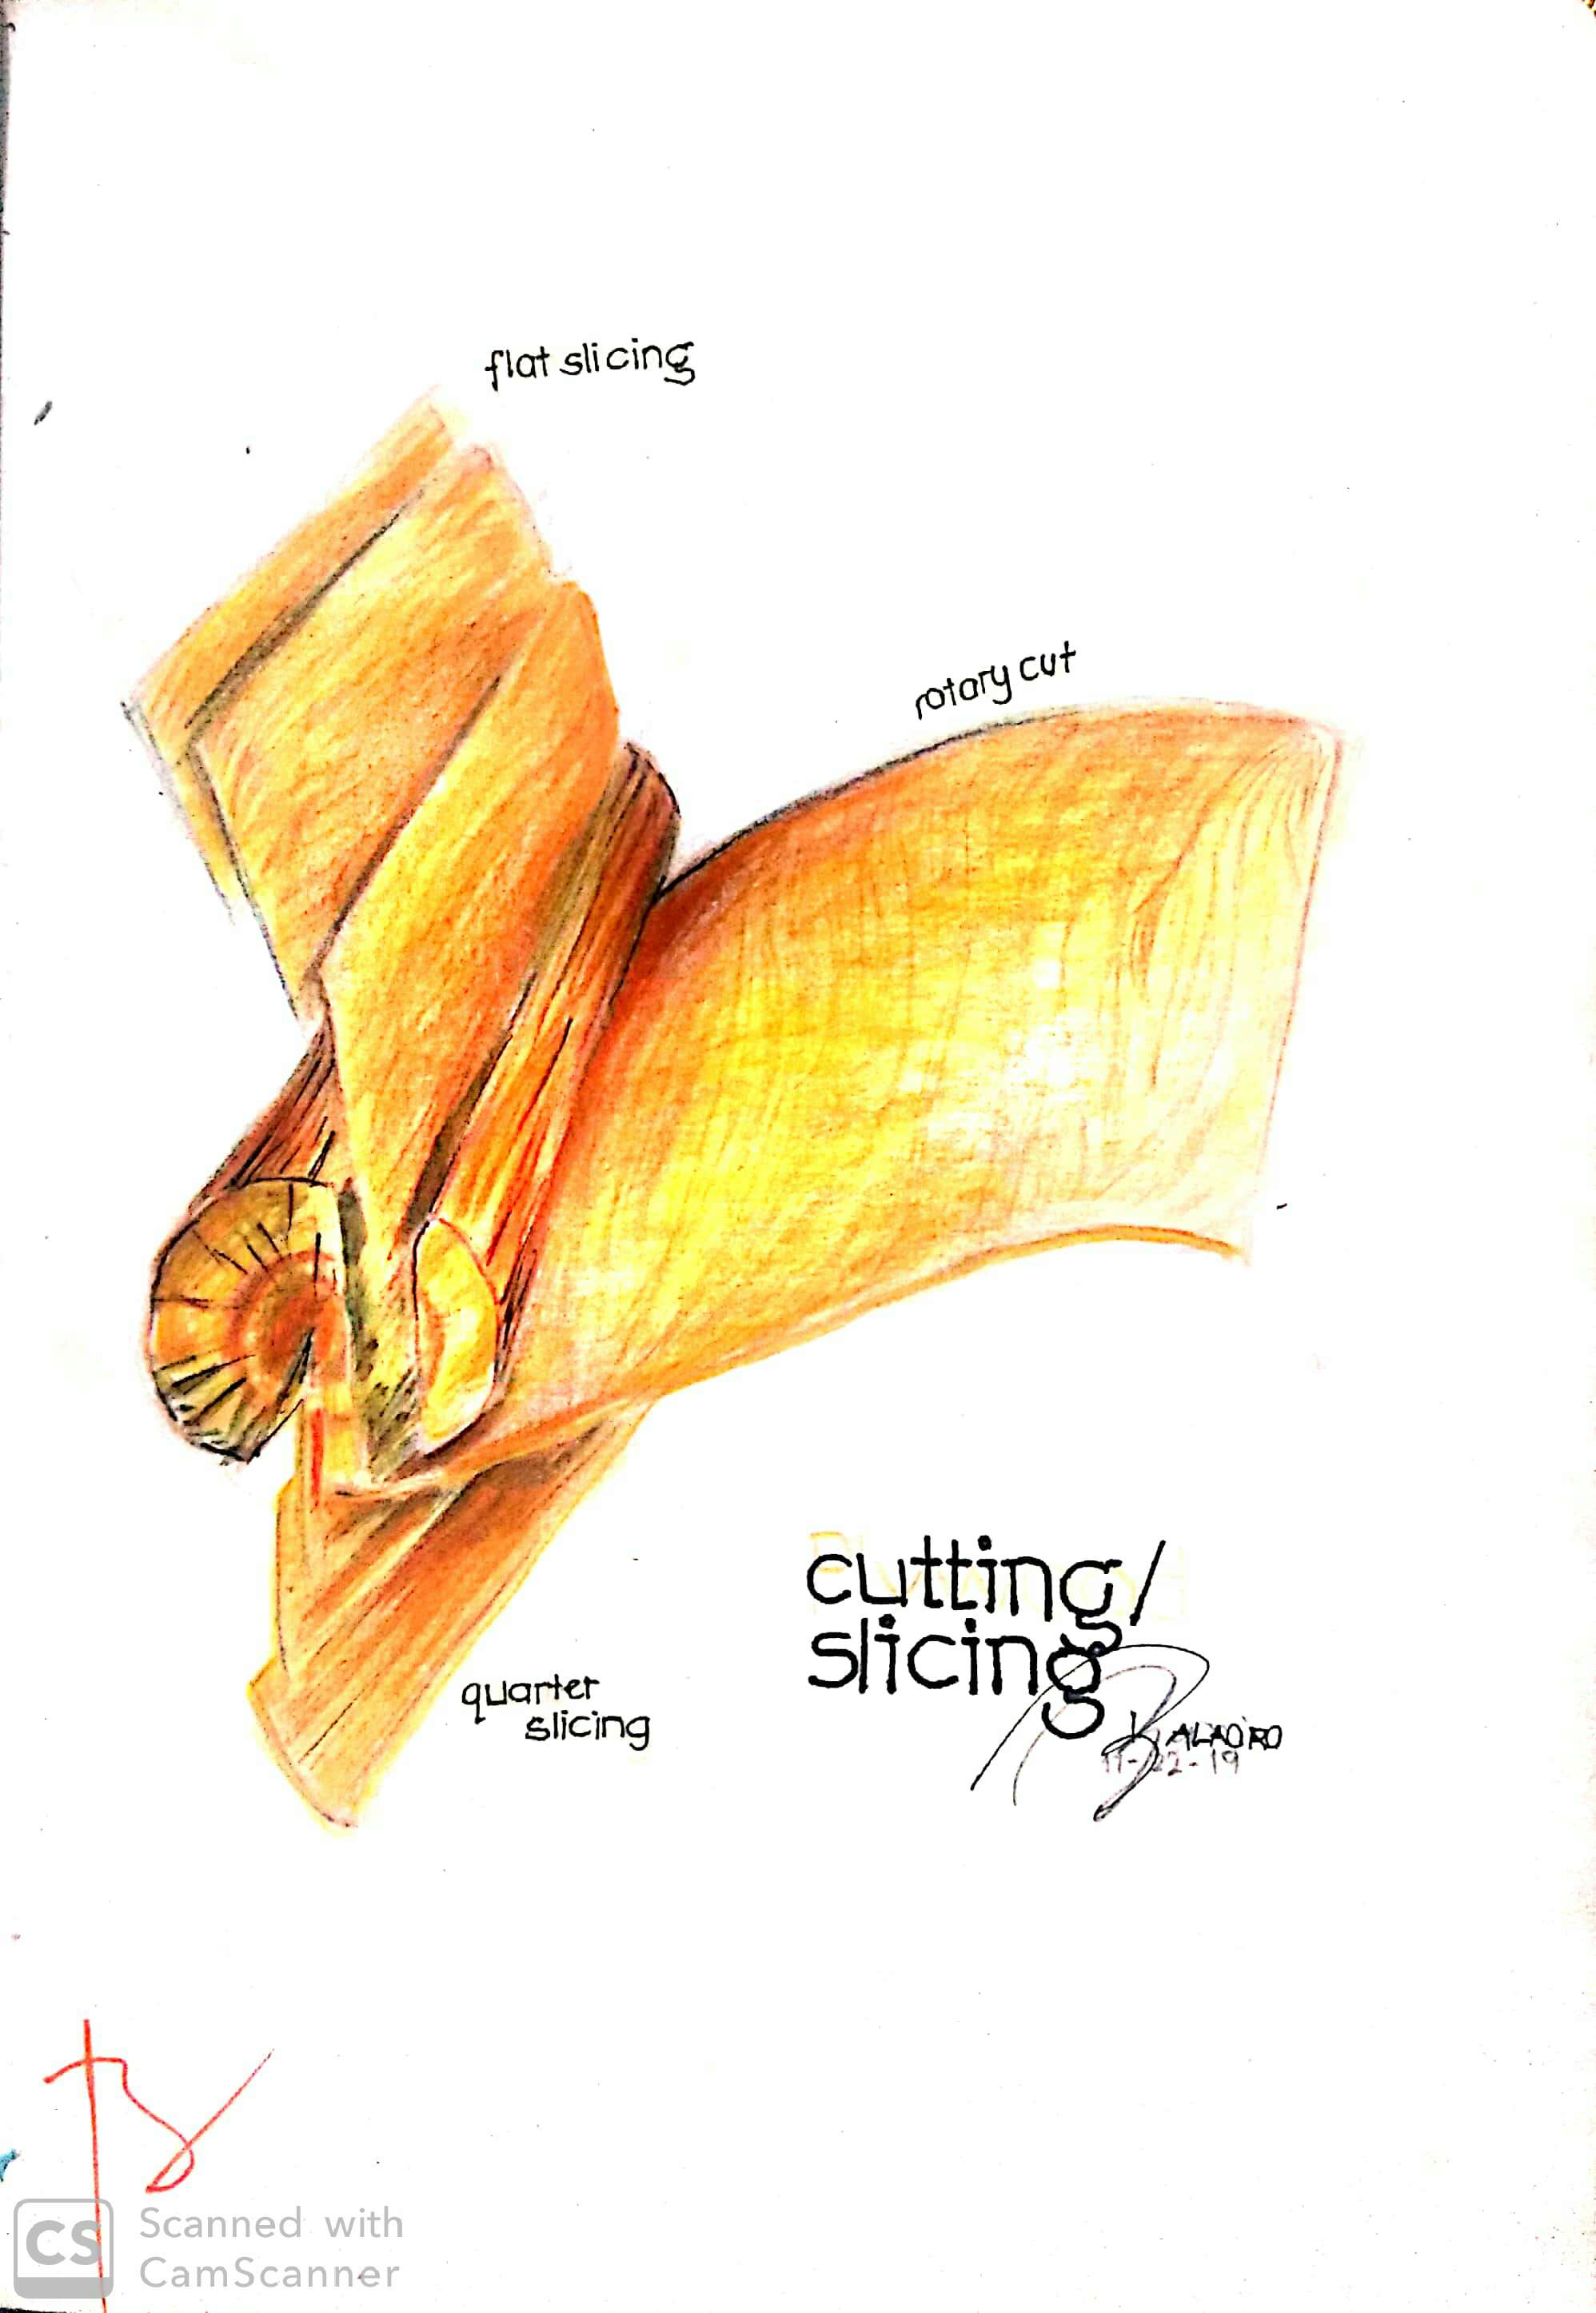 flat slicing
rotary cut
quarter
slicing
cutting/
slicing
11-22-19
CS
Scanned with
CamScanner